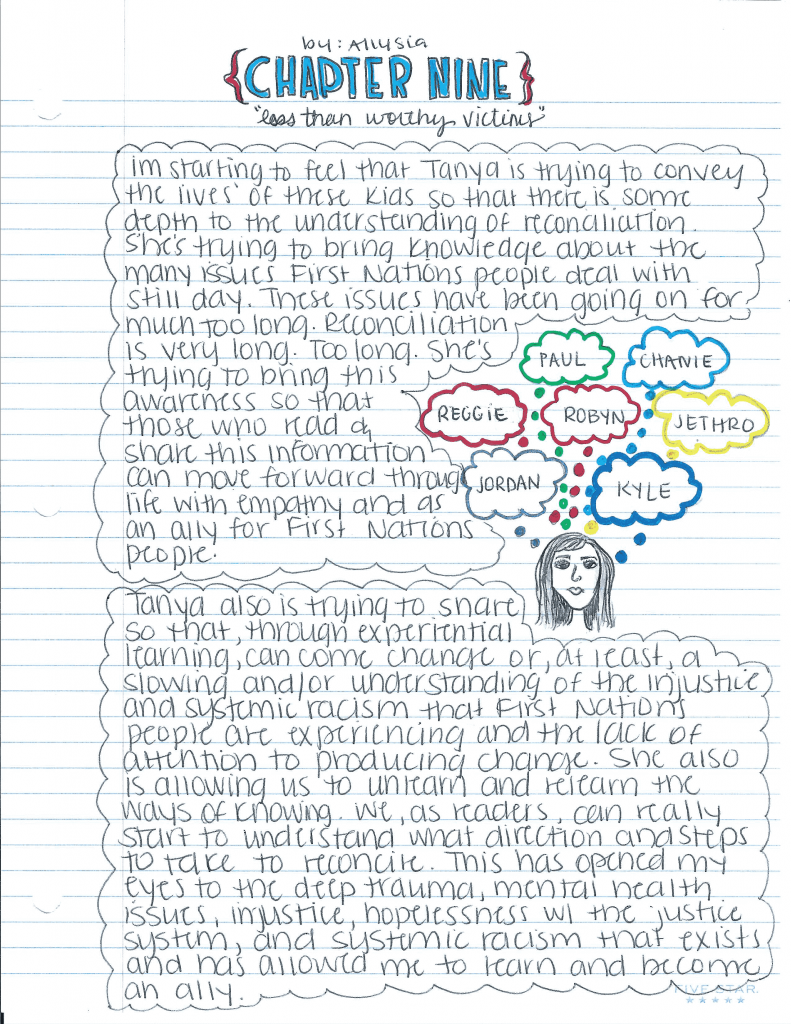 by: Allysia
{CHAPTER NINE}
"less than worthy victims"
im starting to feel that Tanya is trying to convey
the lives of these kids so that there is some
depth to the understanding of reconciliation.
She's trying to bring knowledge about the
many issues First Nations people deal with
still day. These issues have been going on for
much too long. Reconciliation
is very long. Too long. She's
trying to bring this
awareness so that
those who read &
share this information
can move forward through
life with empathy and as
an ally for First Nations
people.
PAUL
CHANIE
REGGIE
ROBYN
JETHRO
JORDAN
KYLE
Tanya also is trying to share
so that, through experiential
learning, can come change or, at least, a
slowing and/or understanding of the injustice
and systemic racism that First Nations
people are experiencing and the lack of
attention to producing change. She also
is allowing us to unlearn and relearn the
ways of knowing. We, as readers, can really
start to understand what direction and steps
to take to reconcile. This has opened my
eyes to the deep trauma, mental health
issues, injustice, hopelessness w/ the justice
system, and systemic racism that exists
and has allowed me to learn and become
an ally.
FIVE STAR.